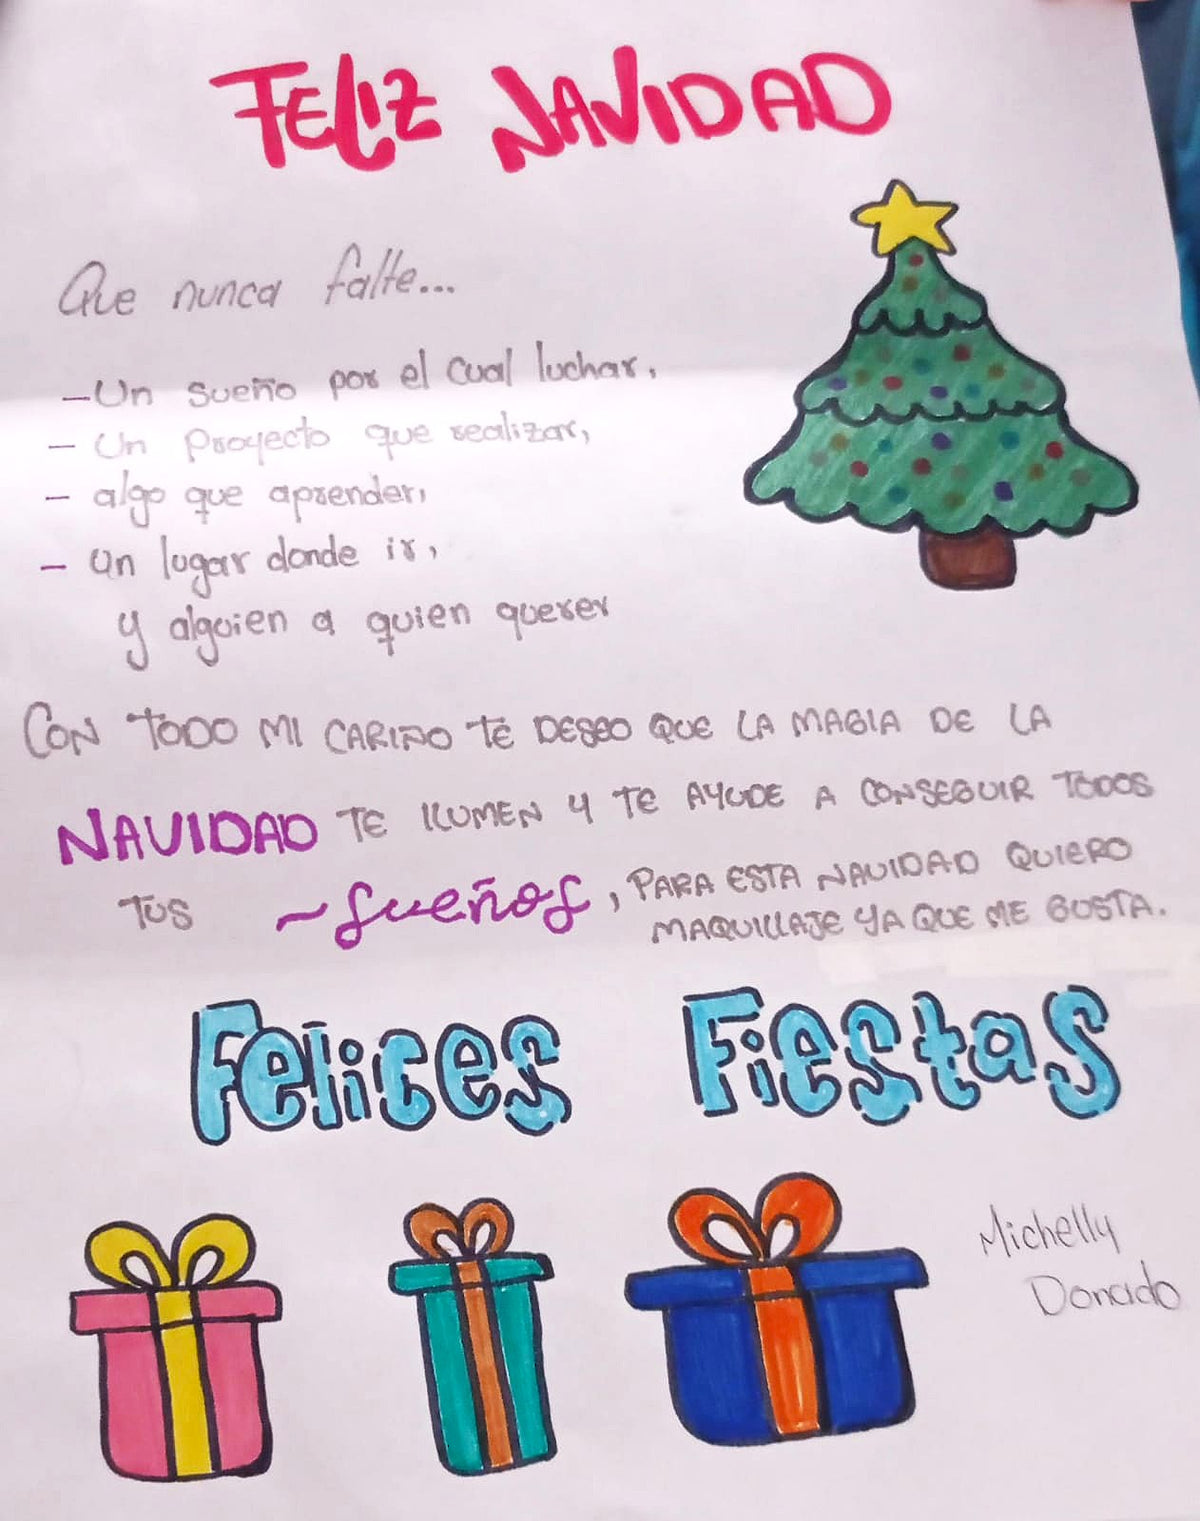 FELIZ NAVIDAD
Que nunca falte...
– Un sueño por el cual luchar,
– Un proyecto que realizar,
– algo que aprender,
– Un lugar donde ir,
y alguien a quien querer
CON TODO MI CARIÑO TE DESEO QUE LA MAGIA DE LA
NAVIDAD TE ILUMEN Y TE AYUDE A CONSEGUIR TODOS
TUS ~Sueños, PARA ESTA NAVIDAD QUIERO
MAQUILLAJE YA QUE ME GUSTA.
Felices Fiestas
Michelly
Donado